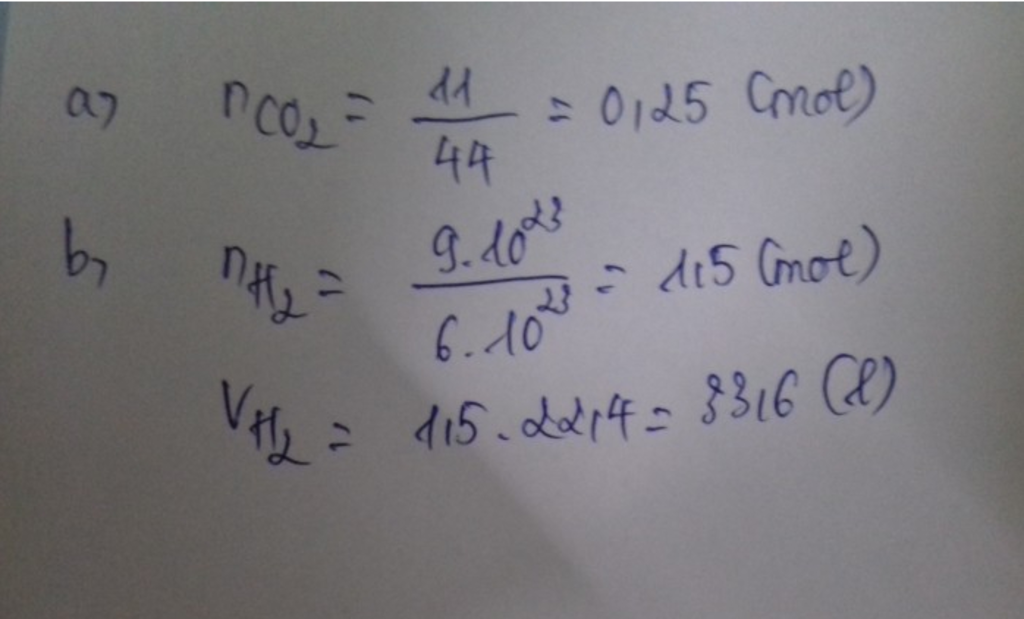 a, n CO₂ = 11/44 = 0,25 (mol)
b, n H₂ = 9.10²³/6.10²³ = 1,5 (mol)
V H₂ = 1,5 . 22,4 = 33,6 (l)